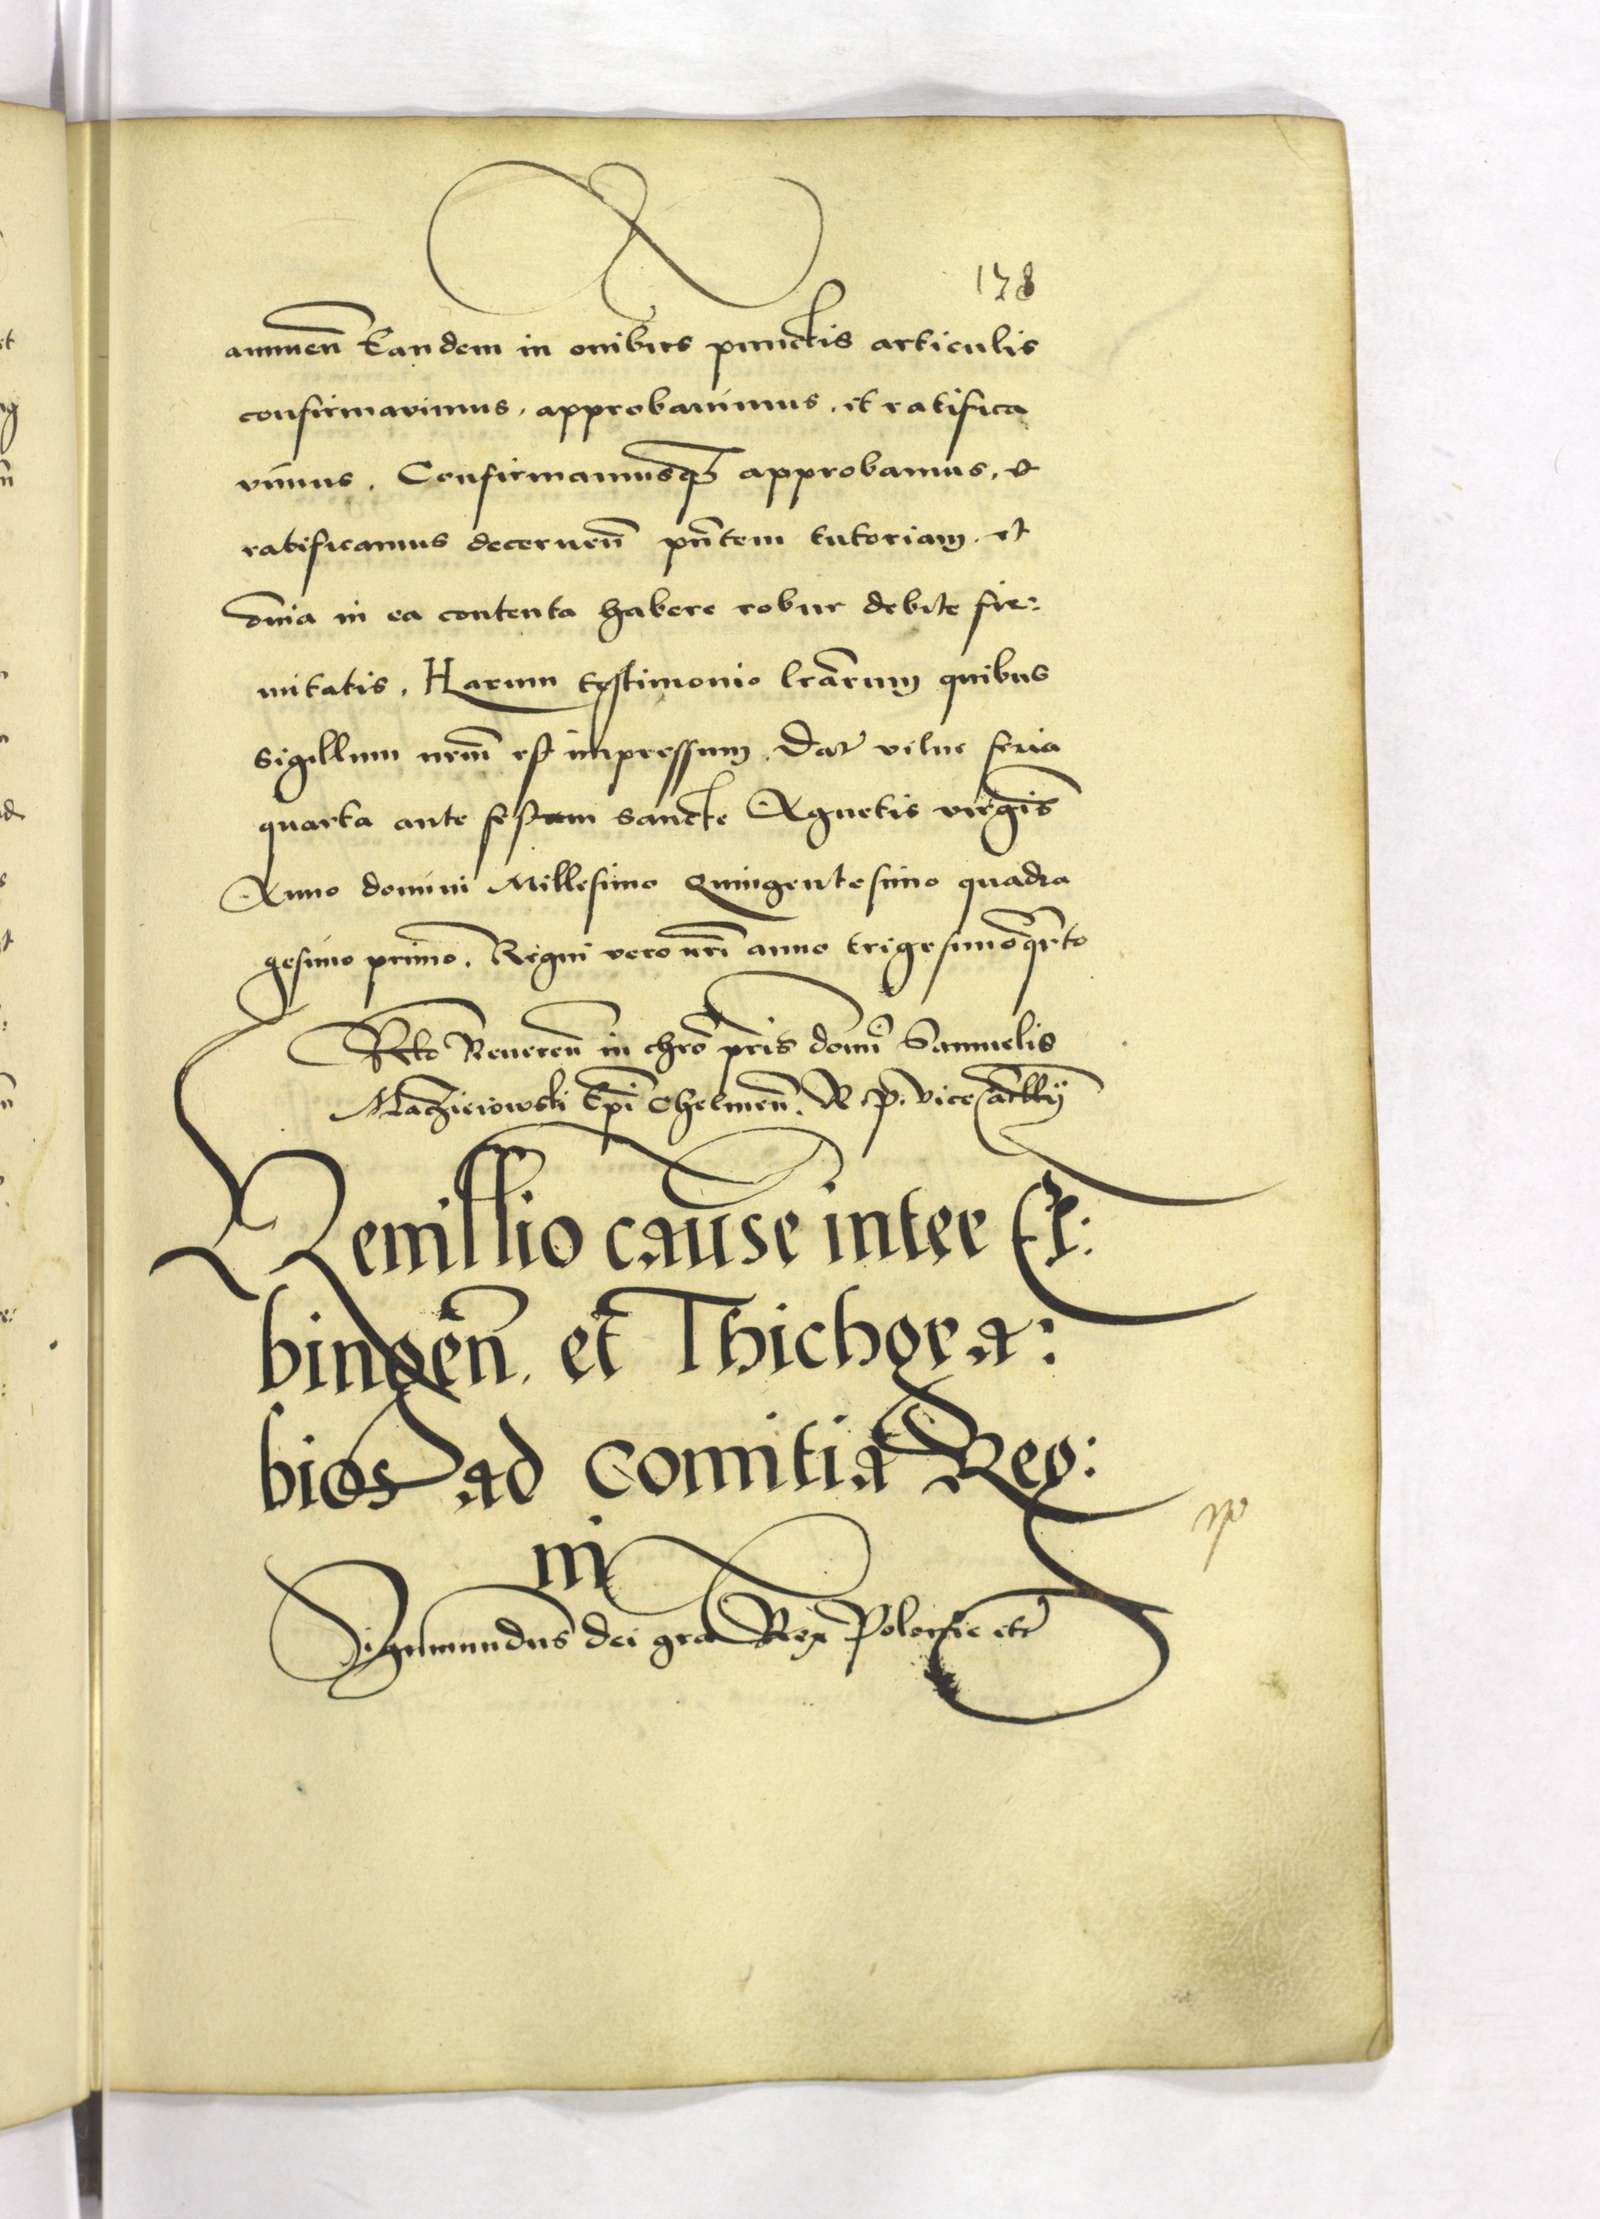 178
annuen̄ Eandem in om̄ibus punctis articulis
confirmavimus, approbavimus, et ratifica
vimus. Confirmamusq₃ approbamus, et
ratificamus decernen̄ pn̄tem tutoriam et
om̄ia in ea contenta habere robur debite fir:
mitatis. Harum testimonio lr̄arum quibus
Sigillum nrm̄ est impressum. Dat Vilne feria
quarta ante festum Sancte Agnetis virginis
Anno domini Millesimo Quingentesimo quadra
gesimo primo. Regni vero nr̄i anno trigesimoqr̄to
Rel̄o Reueren̄ in chr̄o pr̄is domī Samuelis
Maczieiowski Ep̄i Chelmen̄. R. P. vice Can̄llij
Remissio cause inter El:
bingen̄. et Thichora:
bios ad Comitia Reg:
ni
Sigismundus dei gr̄a Rex Polonie etc̄